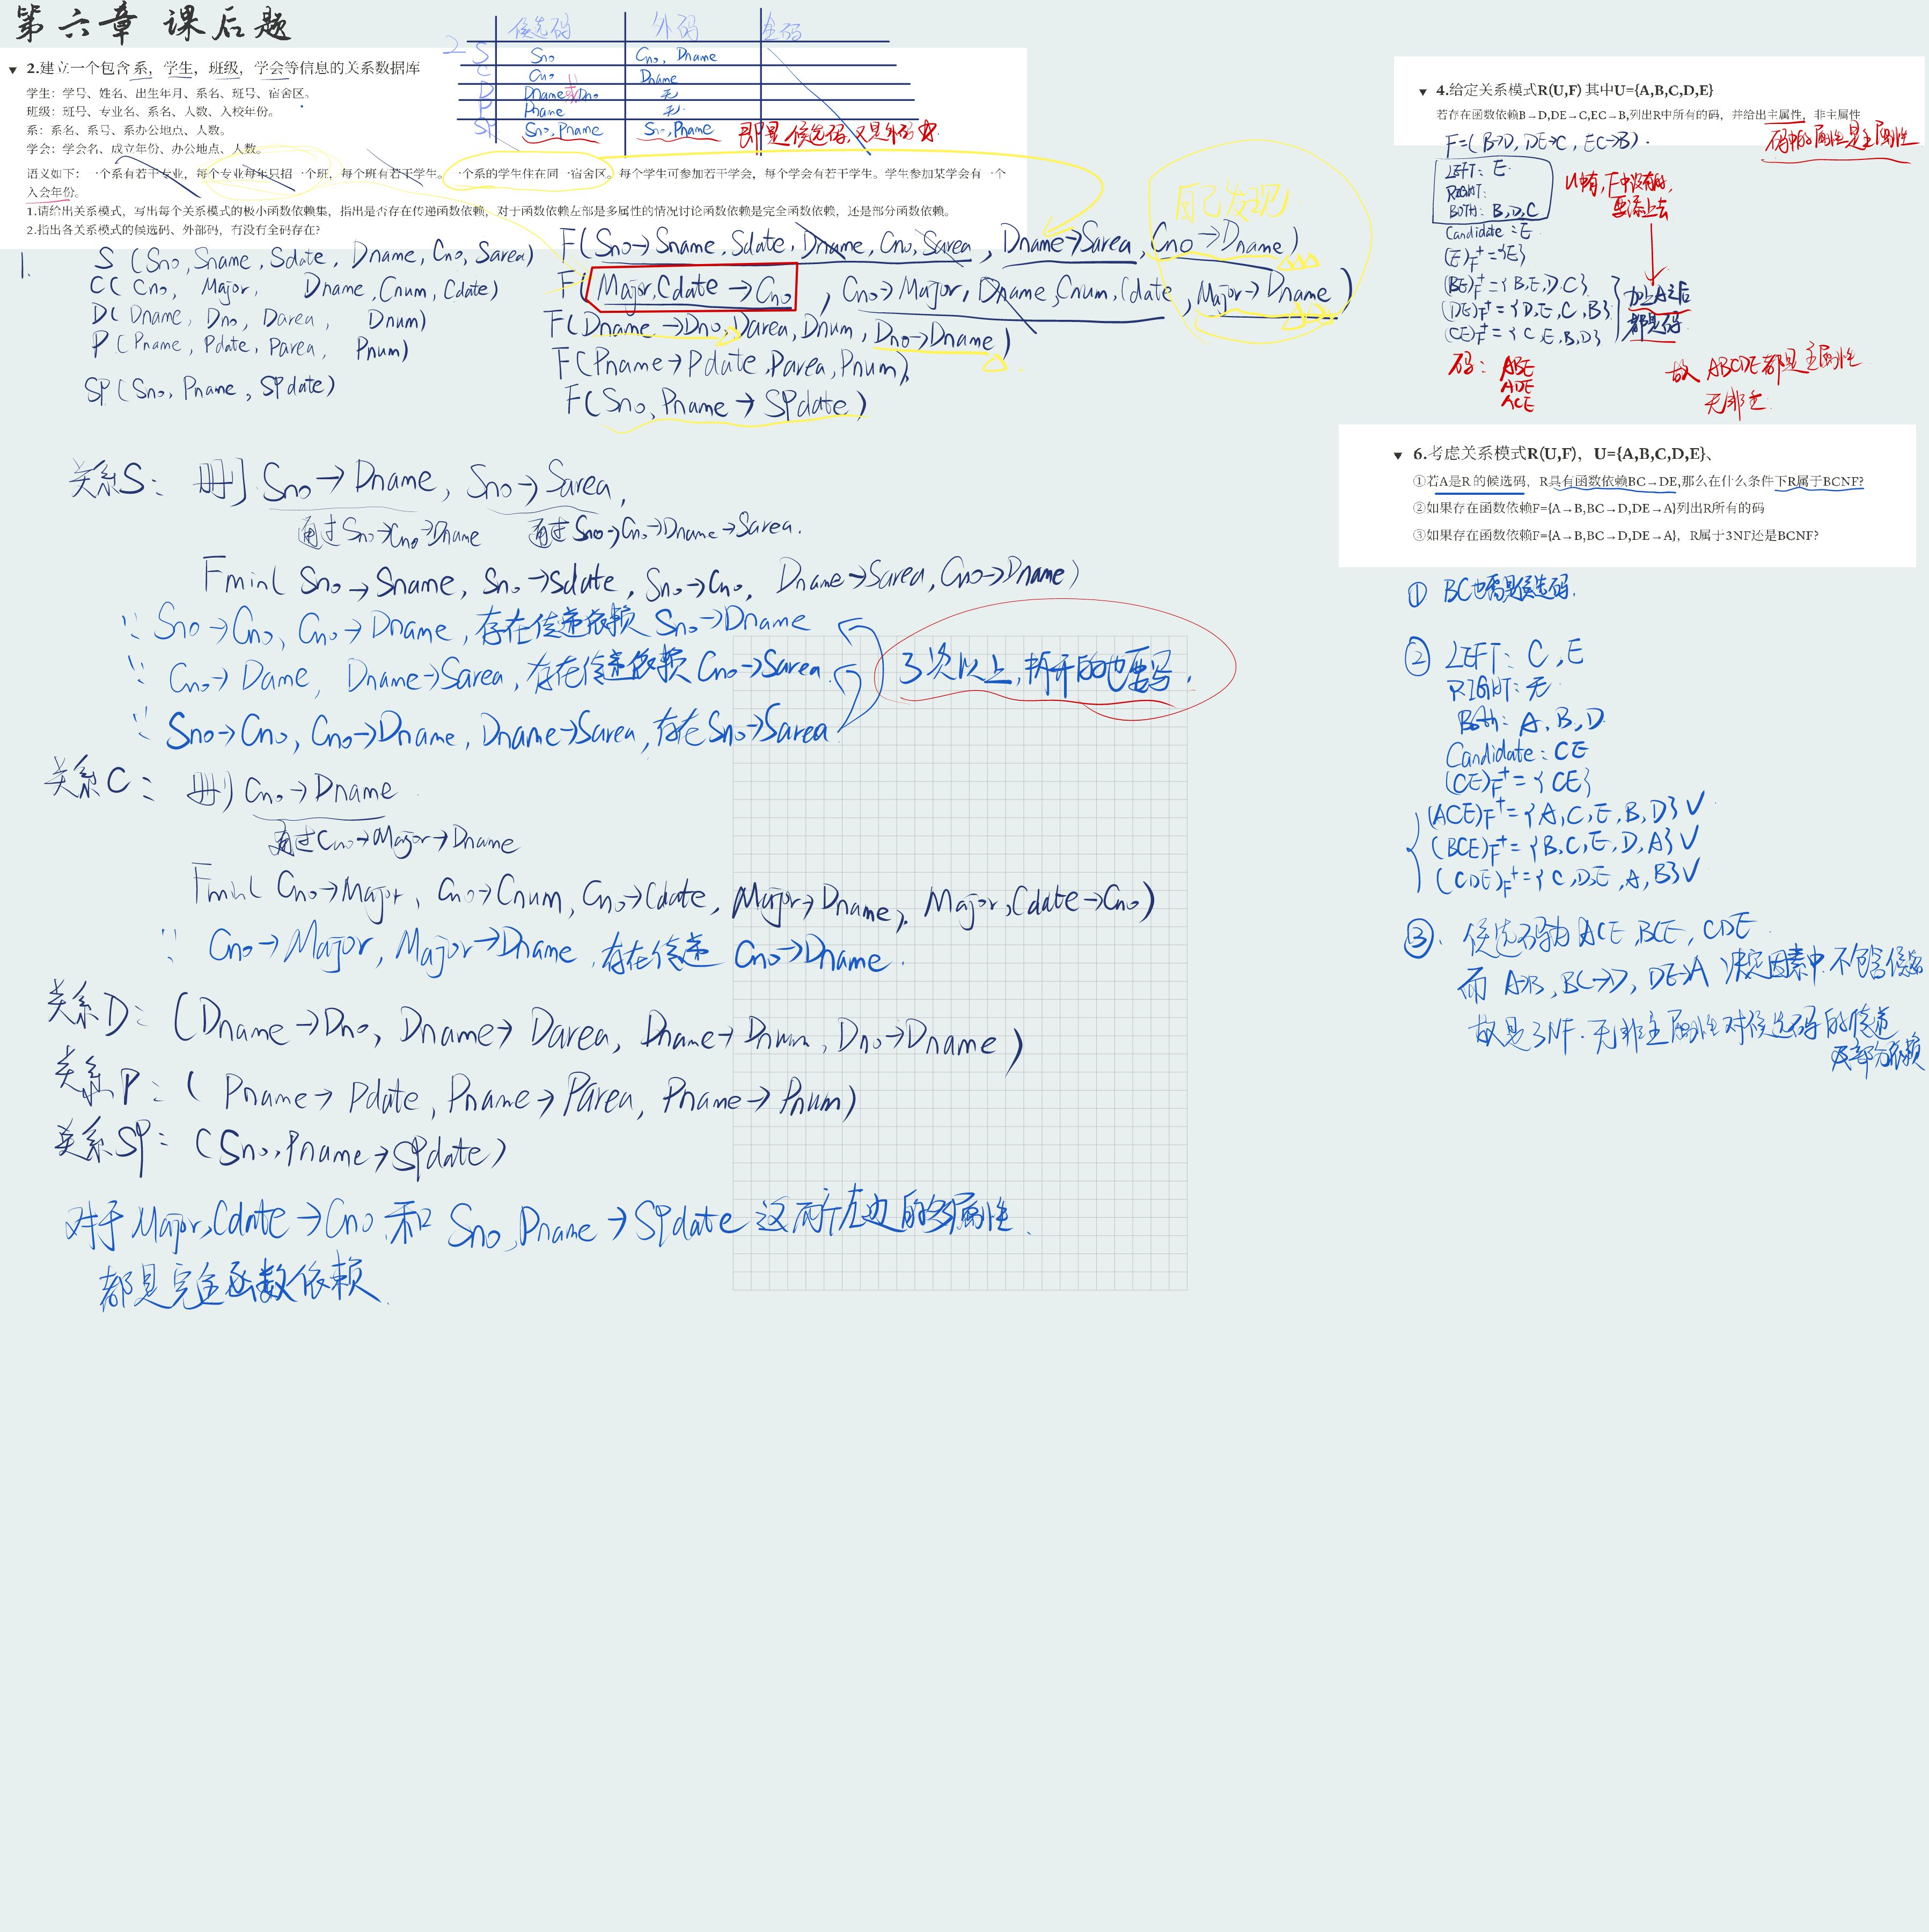 第六章 课后题
2.建立一个包含系，学生，班级，学会等信息的关系数据库
学生：学号、姓名、出生年月、系名、班号、宿舍区。
班级：班号、专业名、系名、人数、入校年份。
系：系名、系号、系办公地点、人数。
学会：学会名、成立年份、办公地点、人数。
语义如下：一个系有若干专业，每个专业每年只招一个班，每个班有若干学生。一个系的学生住在同一宿舍区。每个学生可参加若干学会，每个学会有若干学生。学生参加某学会有一个
入会年份。
1.请给出关系模式，写出每个关系模式的极小函数依赖集，指出是否存在传递函数依赖，对于函数依赖左部是多属性的情况讨论函数依赖是完全函数依赖，还是部分函数依赖。
2.指出各关系模式的候选码、外部码，有没有全码存在?
2 候选码 外码 全码
S Sno Cno, Dname
C Cno Dname
D Dname或Dno 无
P Pname 无
SP Sno,Pname Sno,Pname 即是候选码,又是外码
自己发现
1.
S (Sno, Sname, Sdate, Dname, Cno, Sarea)
C( Cno, Major, Dname, Cnum, Cdate)
D( Dname, Dno, Darea, Dnum)
P (Pname, Pdate, Parea, Pnum)
SP (Sno, Pname, SPdate)
F(Sno→Sname, Sdate, Dname, Cno, Sarea, Dname→Sarea, Cno→Dname)
F(Major,Cdate→Cno, Cno→Major, Dname, Cnum, Cdate, Major→Dname)
F(Dname→Dno, Darea, Dnum, Dno→Dname)
F(Pname→Pdate, Parea, Pnum)
F(Sno, Pname→SPdate)
关系S： 删 Sno→Dname, Sno→Sarea,
通过Sno→Cno→Dname 通过Sno→Cno→Dname→Sarea.
Fmin( Sno→Sname, Sno→Sdate, Sno→Cno, Dname→Sarea, Cno→Dname)
∵ Sno→Cno, Cno→Dname, 存在传递依赖 Sno→Dname
∵ Cno→Dame, Dname→Sarea, 存在传递依赖 Cno→Sarea
∵ Sno→Cno, Cno→Dname, Dname→Sarea, 存在Sno→Sarea
3次以上,拆开的也要写.
关系C： 删 Cno→Dname
通过Cno→Major→Dname
Fmin( Cno→Major, Cno→Cnum, Cno→Cdate, Major→Dname, Major,Cdate→Cno)
∵ Cno→Major, Major→Dname, 存在传递 Cno→Dname.
关系D：(Dname→Dno, Dname→Darea, Dname→Dnum, Dno→Dname)
关系P：( Pname→Pdate, Pname→Parea, Pname→Pnum)
关系SP：(Sno,Pname→SPdate)
对于Major,Cdate→Cno和Sno,Pname→SPdate这两个左边的多属性
都是完全函数依赖.
4.给定关系模式R(U,F) 其中U={A,B,C,D,E}
若存在函数依赖B→D,DE→C,EC→B,列出R中所有的码，并给出主属性，非主属性
码中的属性是主属性
F=( B→D, DE→C, EC→B).
LEFT: E
RIGHT:
BOTH: B,D,C
U中有,F中没有的,
要添上去
Candidate: E
(E)F+={E}
(BE)F+={B,E,D,C}
(DE)F+={D,E,C,B}
(CE)F+={C,E,B,D}
加上A之后
都是码
码：ABE
ADE
ACE
故 ABCDE都是主属性
无非主.
6.考虑关系模式R(U,F)，U={A,B,C,D,E}、
①若A是R的候选码，R具有函数依赖BC→DE,那么在什么条件下R属于BCNF?
②如果存在函数依赖F={A→B,BC→D,DE→A}列出R所有的码
③如果存在函数依赖F={A→B,BC→D,DE→A}，R属于3NF还是BCNF?
① BC也需是候选码.
② LEFT: C, E
RIGHT: 无
Both: A, B, D
Candidate: CE
(CE)F+={CE}
(ACE)F+={A,C,E,B,D}√
(BCE)F+={B,C,E,D,A}√
(CDE)F+={C,D,E,A,B}√
③. 候选码为ACE,BCE,CDE
而 A→B, BC→D, DE→A 决定因素中不包含候选
故是3NF.无非主属性对候选码的传递
或部分依赖